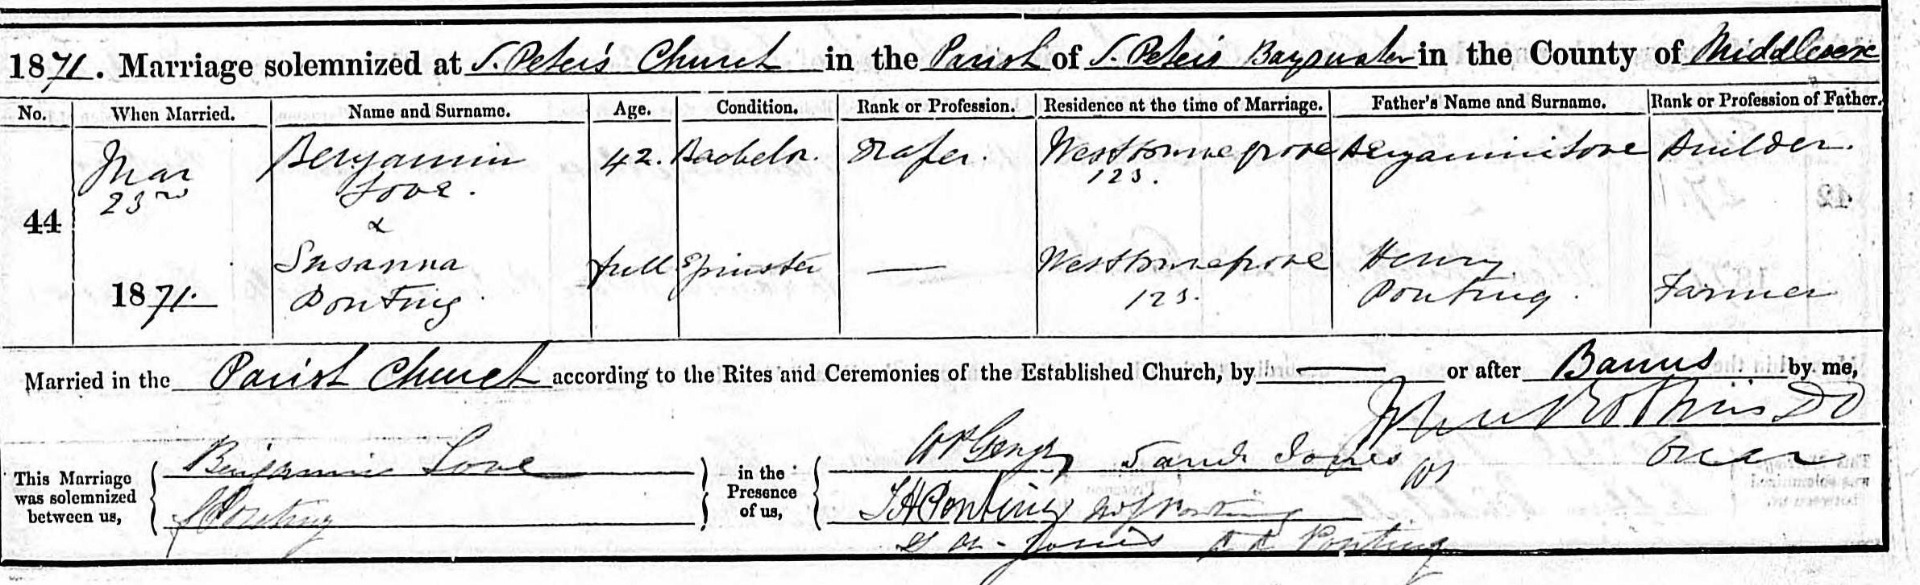 1871. Marriage solemnized at S. Peter's Church in the Parish of S. Peter's Bayswater in the County of Middlesex
No. When Married. Name and Surname. Age. Condition. Rank or Profession. Residence at the time of Marriage. Father's Name and Surname. Rank or Profession of Father.
44 Mar 23rd 1871.
Benjamin Love. 42. Bachelor. Draper. Westbourne grove 123. Benjamin Love Builder.
&
Susanna Ponting full Spinster — Westbourne grove 123. Henry Ponting. Farmer
Married in the Parish Church according to the Rites and Ceremonies of the Established Church, by — or after Banns by me,
John Robbins DD
Vicar
This Marriage was solemnized between us,
Benjamin Love
S Ponting
in the Presence of us,
Sarah Jones
T H Ponting Ponting
Jones Ponting